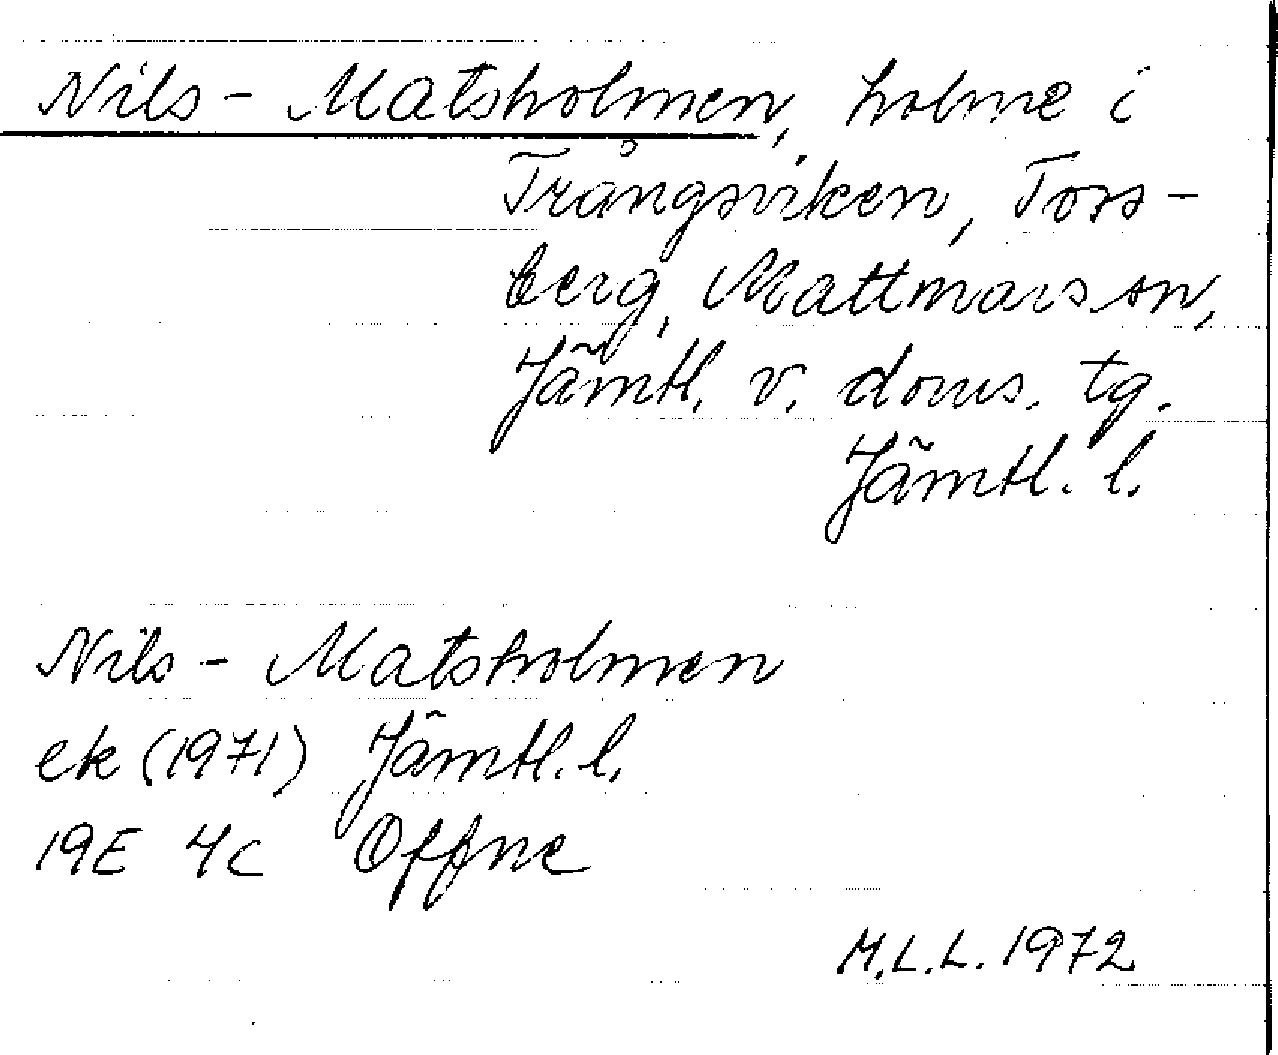 Nils-Matsholmen, holme i
Trångsviken, Tors-
berg, Mattmarsön,
Jämtl. v. doms. tg.
Jämtl. l.
Nils-Matsholmen
ek (1971) Jämtl. l.
19E 4c Offne
M.L.L. 1972